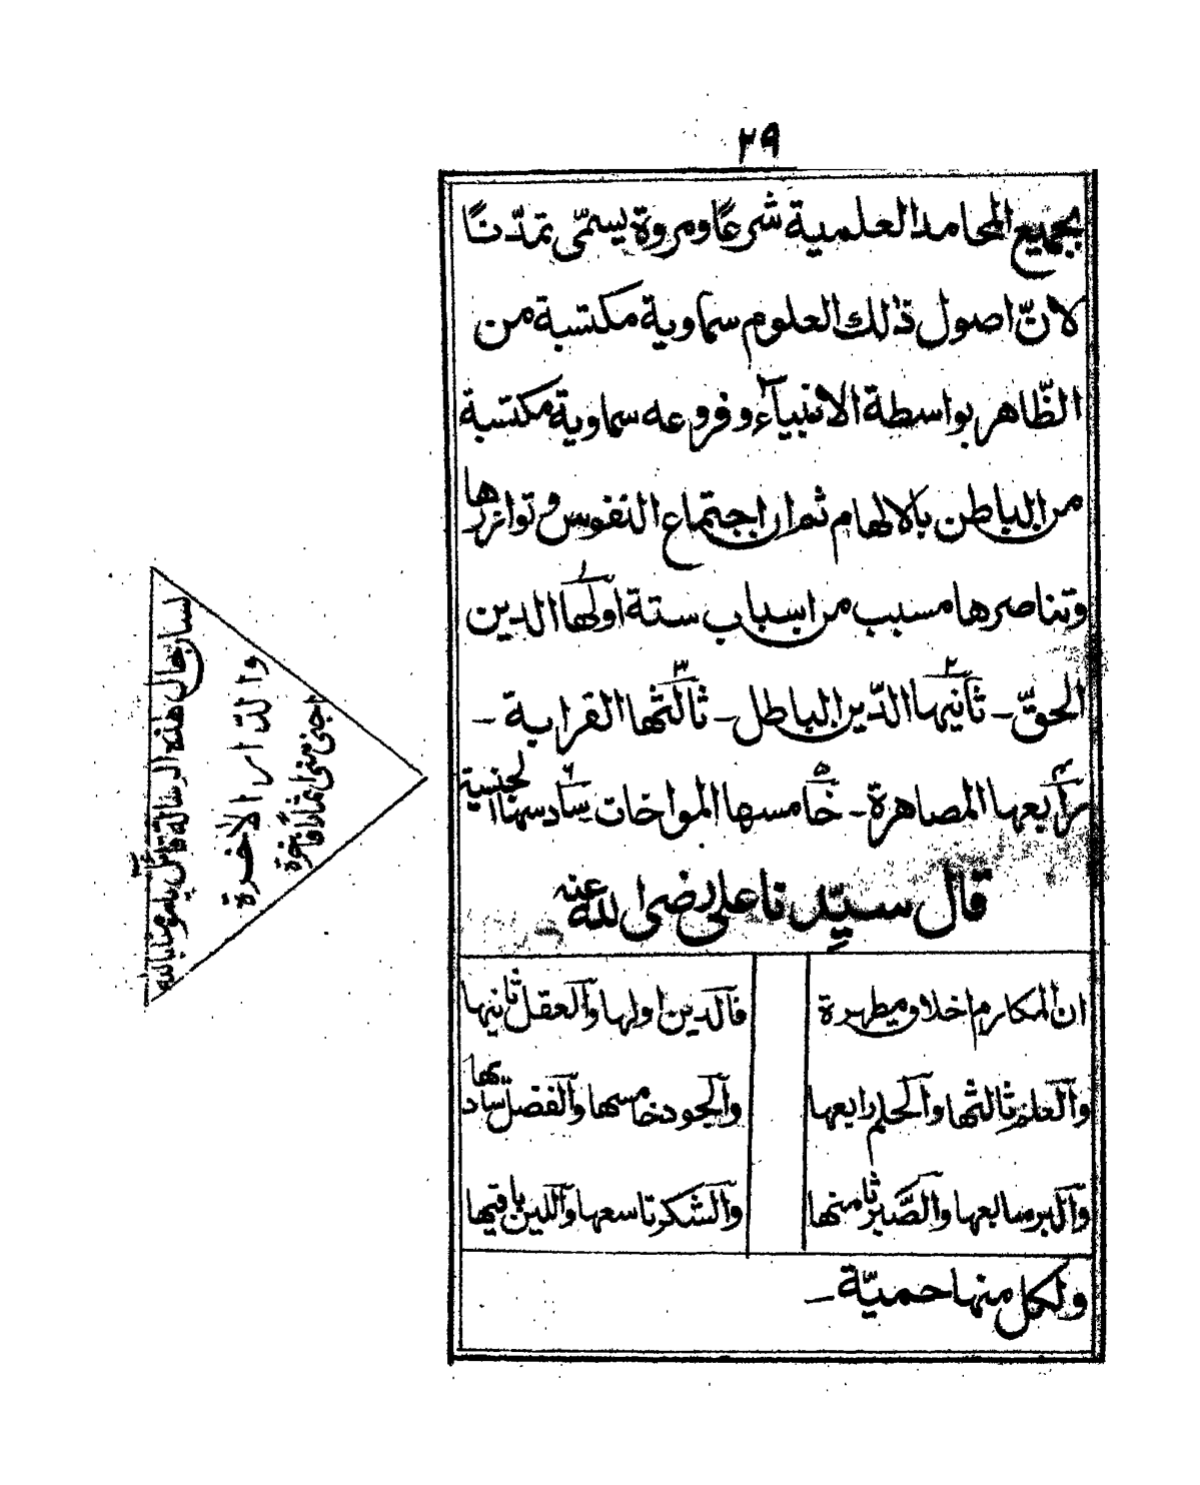 ٢٩
بجميع المحامد العلمية شرعًا ومروة يسمّى تمدّنًا
لانّ اصول ذلك العلوم سماوية مكتسبة من
الظّاهر بواسطة الانبياء وفروعه سماوية مكتسبة
من الباطن بالالهام ثم ان اجتماع النفوس وتوازرها
وتناصرها مسبب من اسباب ستة اولها ١ الدين
الحقّ - ثانيها ٢ الدّين الباطل - ثالثها ٣ القرابة -
رابعها ٤ المصاهرة - خامسها ٥ المواخات سادسها ٦ الجنسية
قال سيّدنا علي رضى الله عنه
ان المكارم اخلاق مطهرة فالدين اولها والعقل ثانيها
والعلم ثالثها والحلم رابعها والجود خامسها والفضل سادیها
والبر سابعها والصّبر ثامنها والشكر تاسعها واللين باقيها
ولكل منها حميّة -
لسان حال هذه الرسالة قائل
والدّار الاخرة
اجنى منى اثمارًا فاخرة